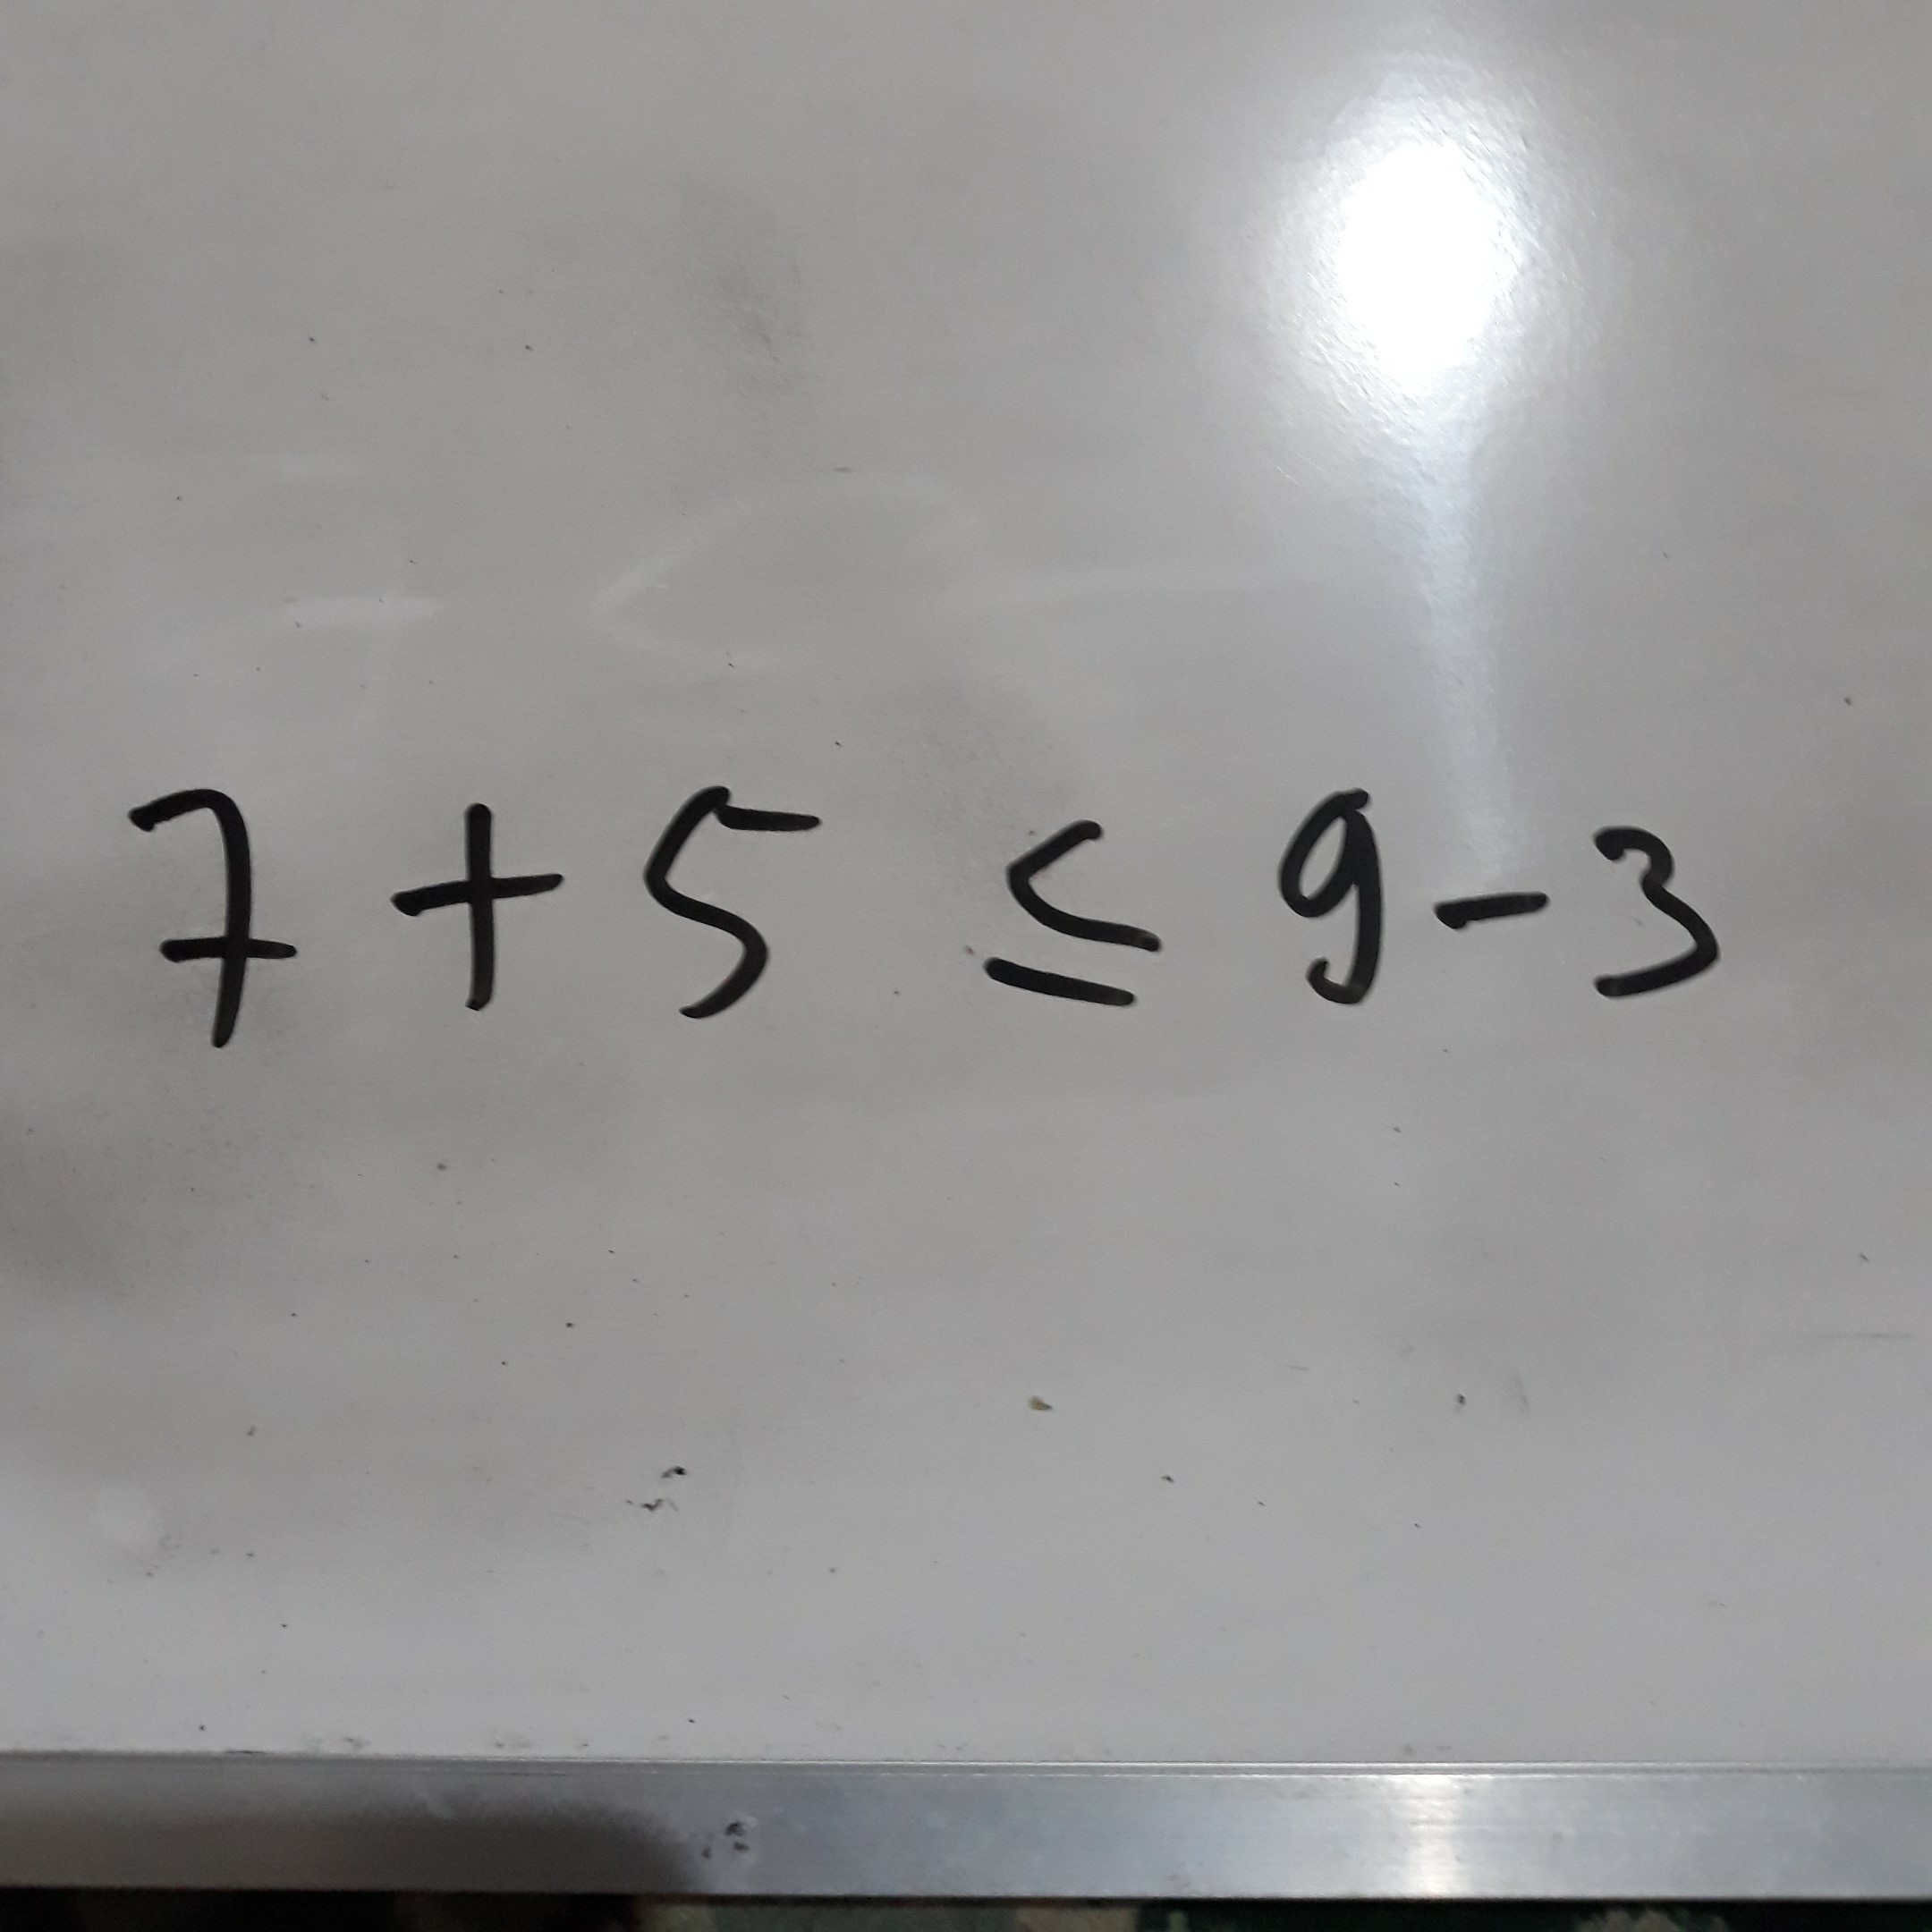 7 + 5 ≤ 9 - 3